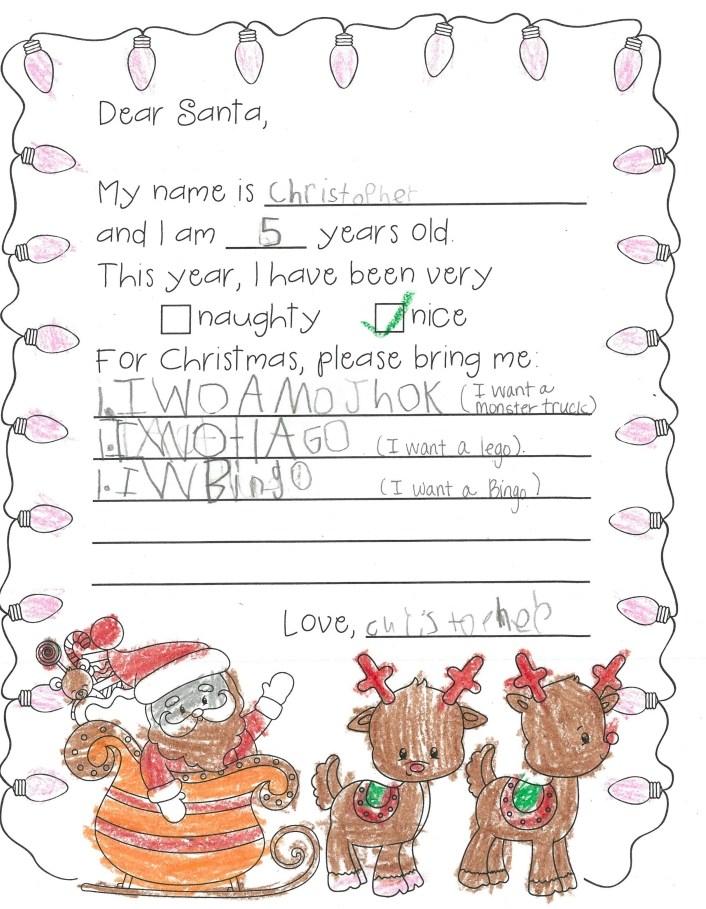 Dear Santa,
My name is Christopher
and I am 5 years old.
This year, I have been very
naughty nice
For Christmas, please bring me:
1. I WO A MO JhOK (I want a monster truck)
1. I XNOHA GO (I want a lego).
1. I W Bingo (I want a Bingo)
Love, christopher